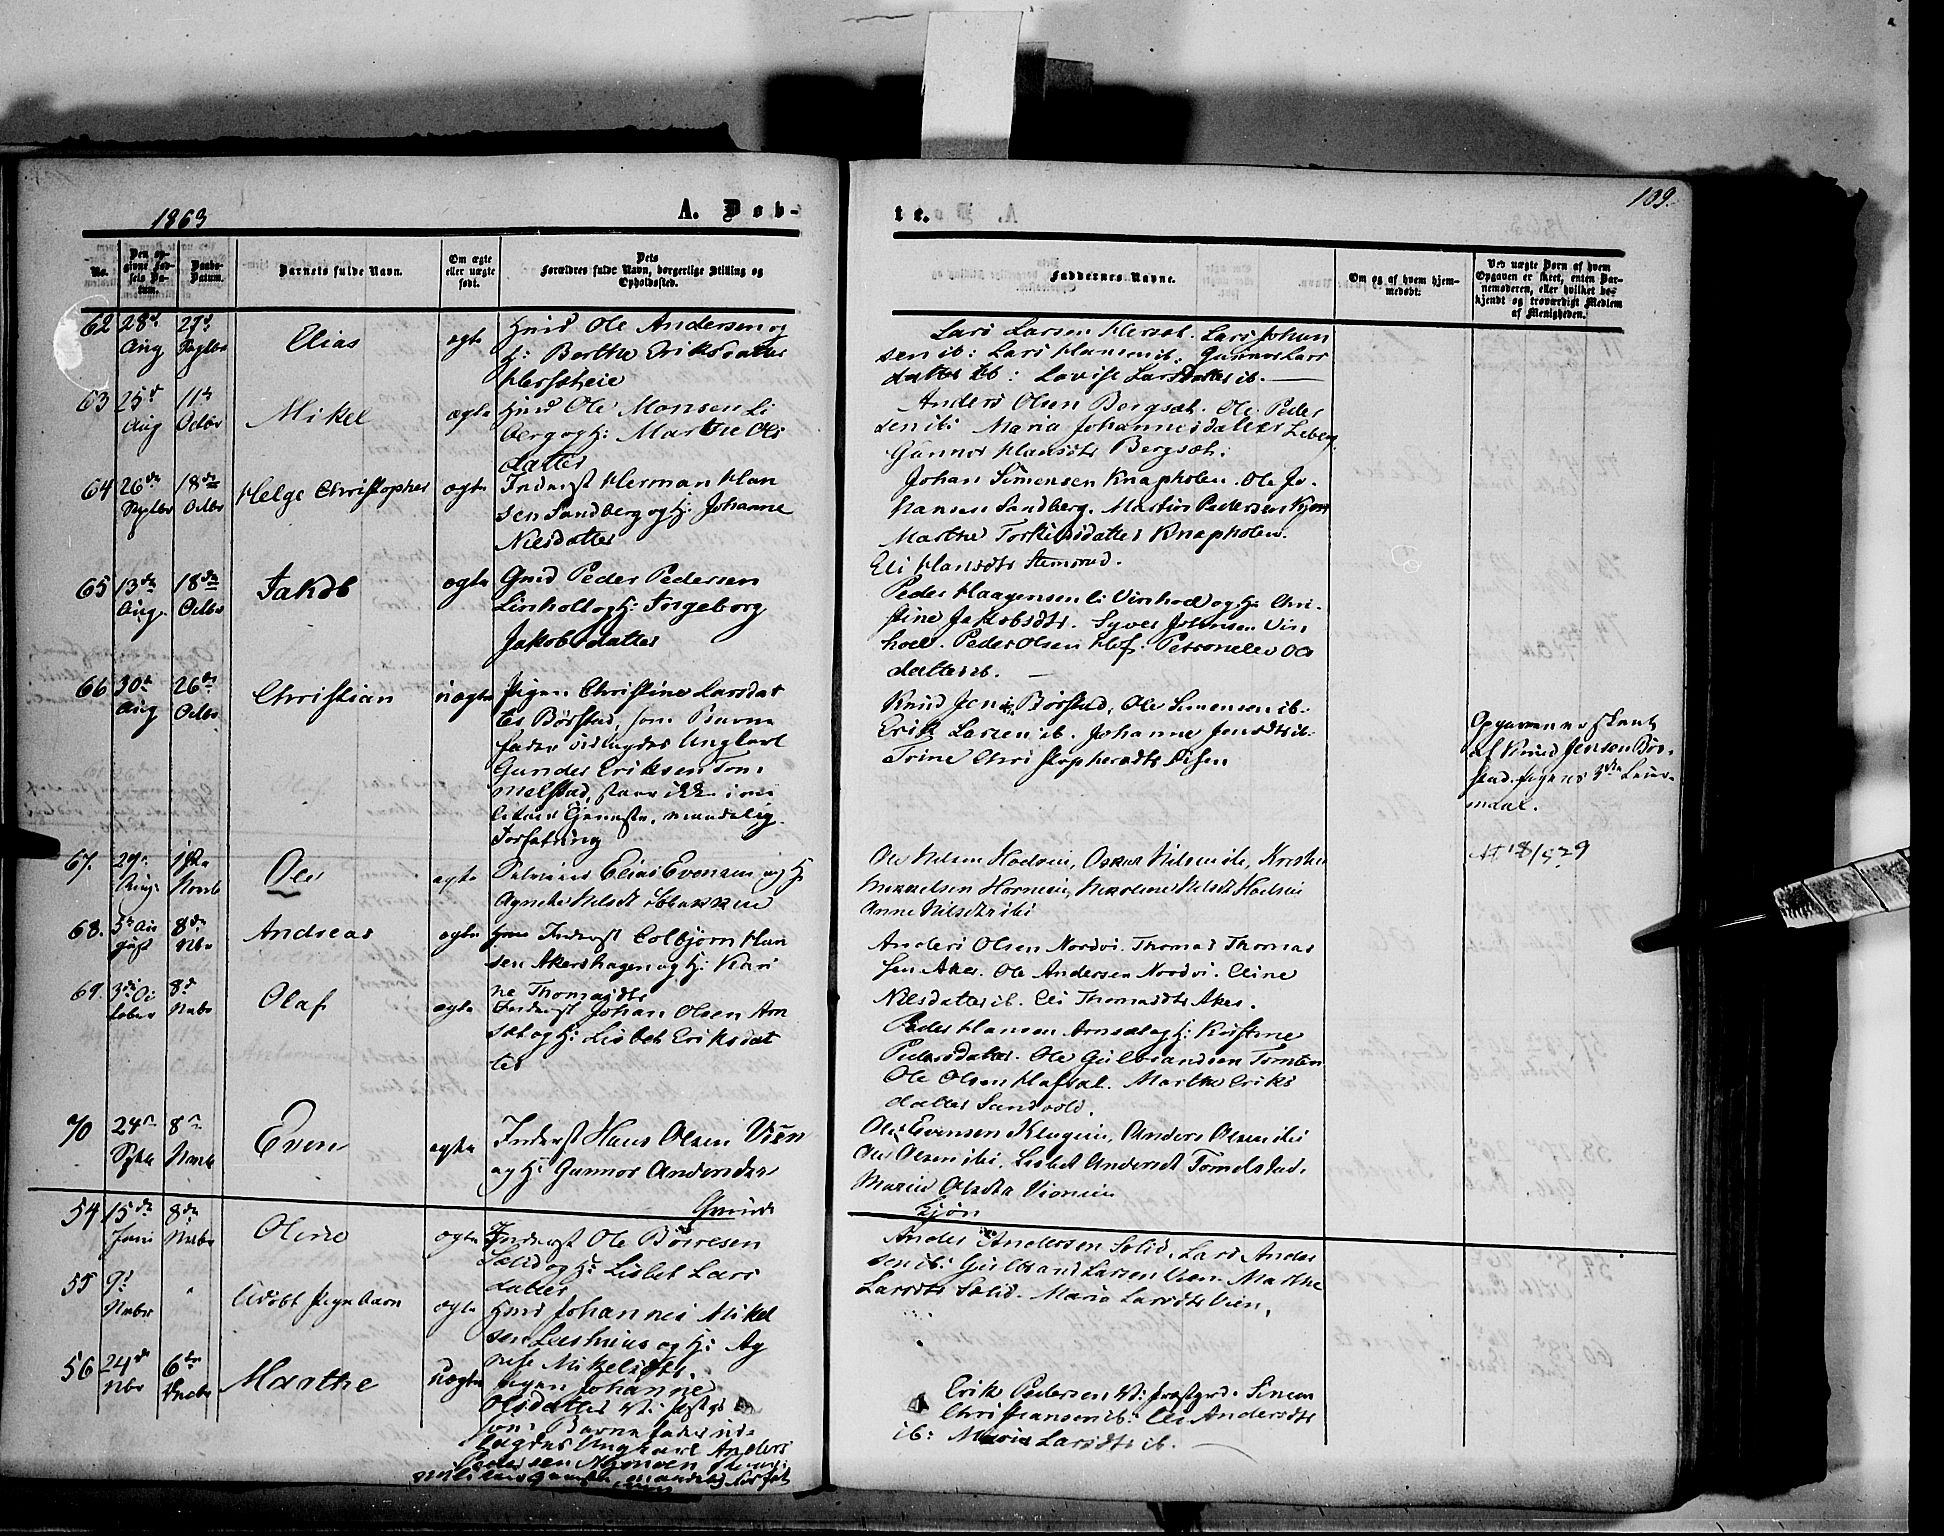 1863
A. Døb-
te.
109.
No.
Den opgivne Fødsels Datum.
Daabs-Datum.
Barnets fulde Navn.
Om ægte eller uægte født.
Dets Forældres fulde Navn, borgerlige Stilling og Opholdssted.
Faddernes Navne.
Om og af hvem hjemmedøbt.
Ved uægte Børn af hvem Opgaven er skeet, enten Barnemoderen, eller hvilket bekjendt og troværdigt Medlem af Menigheden.
62 28d Aug 27d Septbr Elias ægte
Ole Andersen og
H: Berthe Eriksdatter
Lars Larsen Lars Johan
sen ib: Lars Hansen ib: Gunnor Lars
datter ib: Lovise Larsdatter ib.
63 25d Aug 11te Octbr Mikel ægte
Ole Monsen Li
berg og H: Marthe Ols
datter
Anders Olsen Bergsæt. Ole Peder
sen ib: Maria Johannesdatter Leberg
Gunnor Hansdtr Bergsæt.
64 26de Septbr 18de Octbr Helge Christopher ægte
Inderst Herman Han
sen Sandberg og H: Johanne
Nilsdatter
Johan Simensen Knapholen. Ole Jo-
hansen Sandberg. Martin Pedersen
Marthe Torkilsdatter Knapholen.
Eli Hansdtr Stensrud.
65 13de Aug. 18de Octbr Jakob ægte
Gmd Peder Pedersen
Linholt og H: Ingeborg
Jakobsdatter
Peder Haagensen og H: Chri-
stine Jakobsdtr. Syver Johansen
Peder Olsen Hof. Petronelle Ols
datter ib.
66 30te Aug 26de Octbr Christian uægte
Pigen Christine Larsdat
ter Børstad, som Barne
fader udlagdes Ungkarl
Gunder Eriksen Tom
melstad, staar ikke i mi
litair Tjeneste, mundtlig
Forsætning
Knud Jensen Børstad, Ole Simensen ib.
Erik Larsen ib. Johanne Jensdtr ib.
Trine Christophersdtr
Opgaven er skeet
af Knud Jensen Bør-
stad. Pigens 3die Leier-
maal.
67. Aug. Novb Ole ægte
Elias Evensen og H:
Agnethe Nilsdt
Ole Nilsen Oskar Nilsen ib,
Anne Nilsdtr ibi
18/5 29
68. 5te August 8de Nbr Andreas ægte
Inderst Colbjørn Han
sen Akershagen og H: Kari
ne Thomasdtr
Anders Olsen Nordvi. Thomas Thomas
sen Aker. Ole Andersen Nordvi. Eline
Nilsdatter ib. Eli Thomasdtr Aker.
69. 3die October 8d Nvbr Olaf ægte
Inderst Johan Olsen Arn
sæt og H: Lisbet Eriksdat
ter
Peder Hansen Arnsæt og H: Kirstine
Pedersdatter. Ole Gulbrandsen Tomten
Ole Olsen Marthe Eriks
datter Sandvold.
70 24de Septb 8de Novb Even ægte
Inderst Hans Olsen Vien
og H: Gunnor Andersdtr
Ole Evensen Anders Olsen ibi
Ole Olsen ibi, Lisbet Andersdt Tomelstad,
Marie Olsdtr
Qvinde
Kjøn
54 15de Juni 8de Nvbr Oline ægte
Inderst Ole Børresen
Solid og H: Lisbet Lars
datter
Anders Andersen Solid. Lars Ander
sen ib: Gulbrand Larsen Vien. Marthe
Larsdtr Solid. Maria Larsdtr Vien.
55 9d Nvbr " Udøbt Pigebarn ægte
Johannes Mikel
sen og H: Ag
nete Mikelsdtr.
56 24de Nbr 6te Decbr Marthe uægte
Pigen Johanne
Olsdatter
som Barnefader ud-
lagdes Ungkarl Anders
Erik Pedersen Simen
Christiansen ib: Eli Andersdtr
ib: Maria Larsdtr ib.